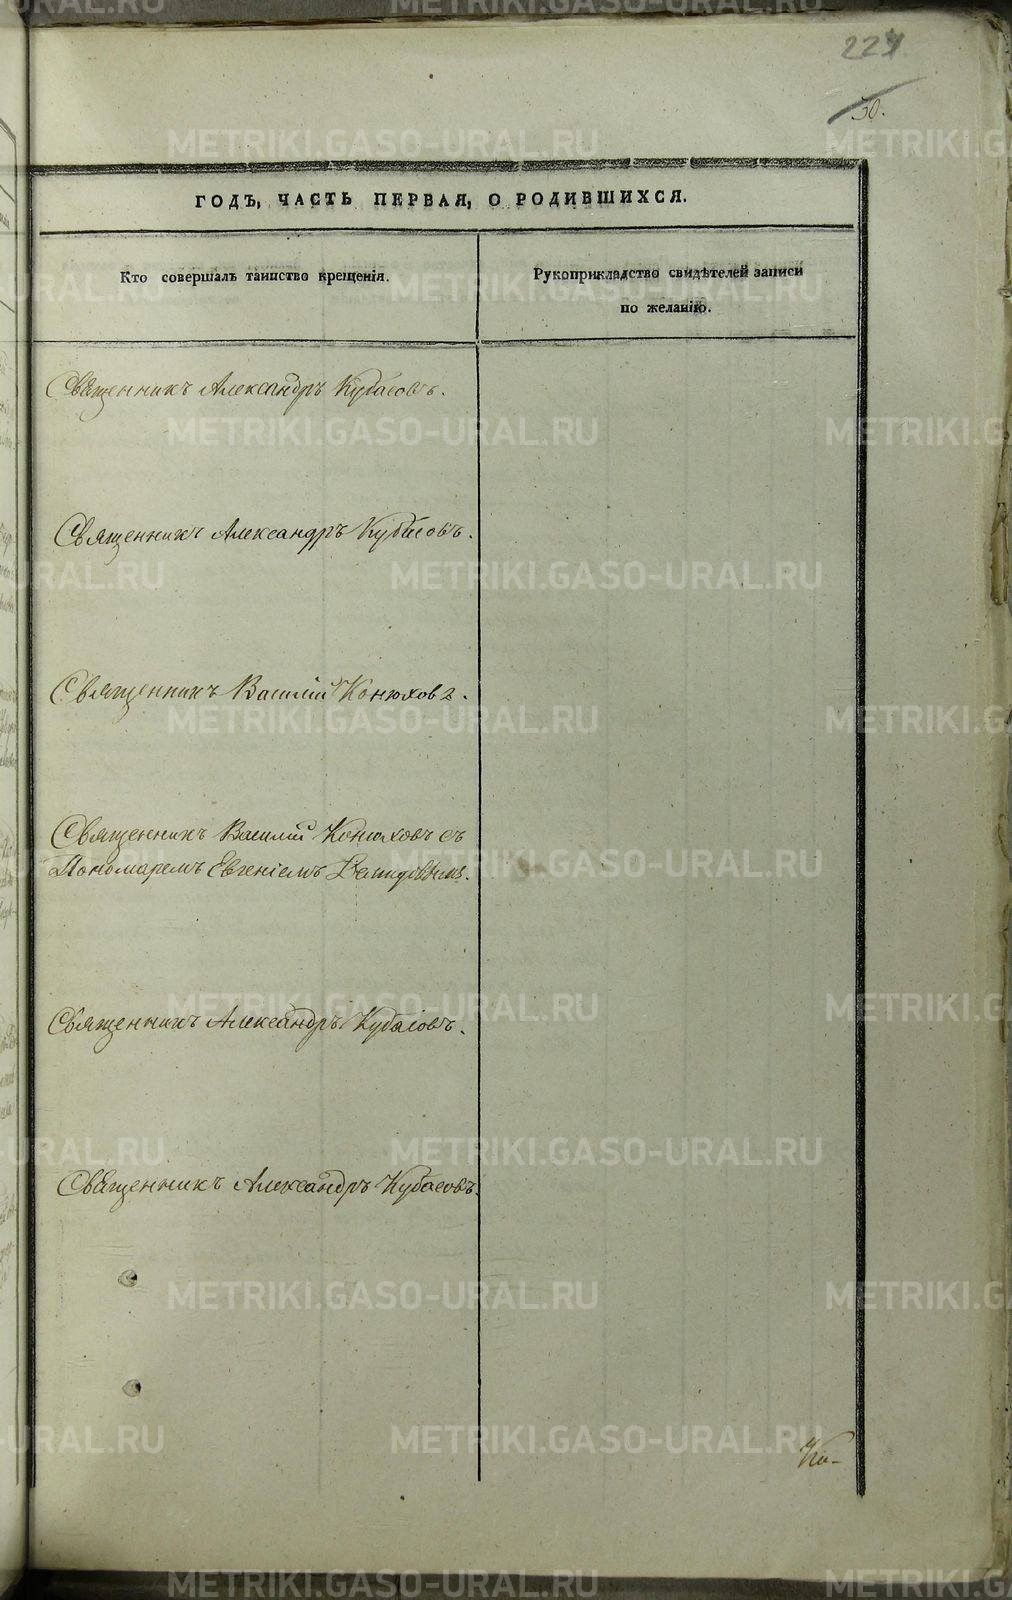 227
50.
ГОДЪ, ЧАСТЬ ПЕРВАЯ, О РОДИВШИХСЯ.
Кто совершалъ таинство крещенія.
Рукоприкладство свидѣтелей записи
по желанію.
Священникъ Александръ Кубасовъ.
Священникъ Александръ Кубасовъ.
Священникъ Василій Конюховъ.
Священникъ Василій Конюховъ съ
Пономаремъ Евгеніемъ Демидовымъ.
Священникъ Александръ Кубасовъ.
Священникъ Александръ Кубасовъ.
METRIKI.GASO-URAL.RU